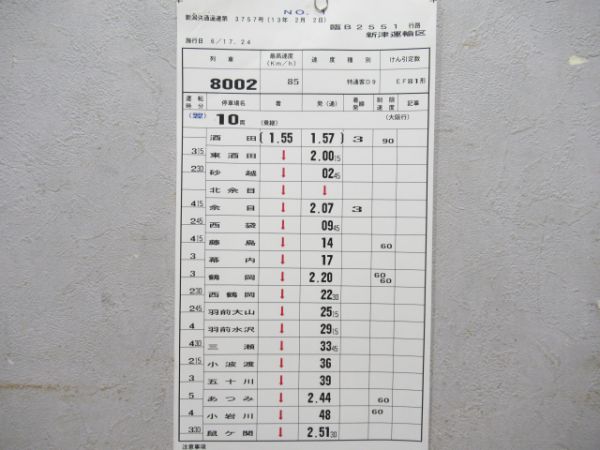 NO. 1
新潟共通運達第 3757号(13年 2月 2日)
臨B2551 行路
新津運輸区
施行日 6/17.24
列車 最高速度(Km/h) 速度種別 けん引定数
8002 85 特通客D9 EF81形
運転時分 停車場名 着 発(通) 着線発線 制限速度 記事
(翌) 10両 (乗継) (大阪行)
酒田 (1.55 1.57) 3 90
315 東酒田 ↓ 2.00 15
230 砂越 ↓ 02 45
北余目 ↓ ↓
415 余目 ↓ 2.07 3
245 西袋 ↓ 09 45
415 藤島 ↓ 14 60
3 幕内 ↓ 17
3 鶴岡 ↓ 2.20 60 60
230 西鶴岡 ↓ 22 30
245 羽前大山 ↓ 25 15
4 羽前水沢 ↓ 29 15
430 三瀬 ↓ 33 45
215 小波渡 ↓ 36
3 五十川 ↓ 39
5 あつみ ↓ 2.44 60
4 小岩川 ↓ 48 60
330 鼠ヶ関 ↓ 2.51 30
注意事項